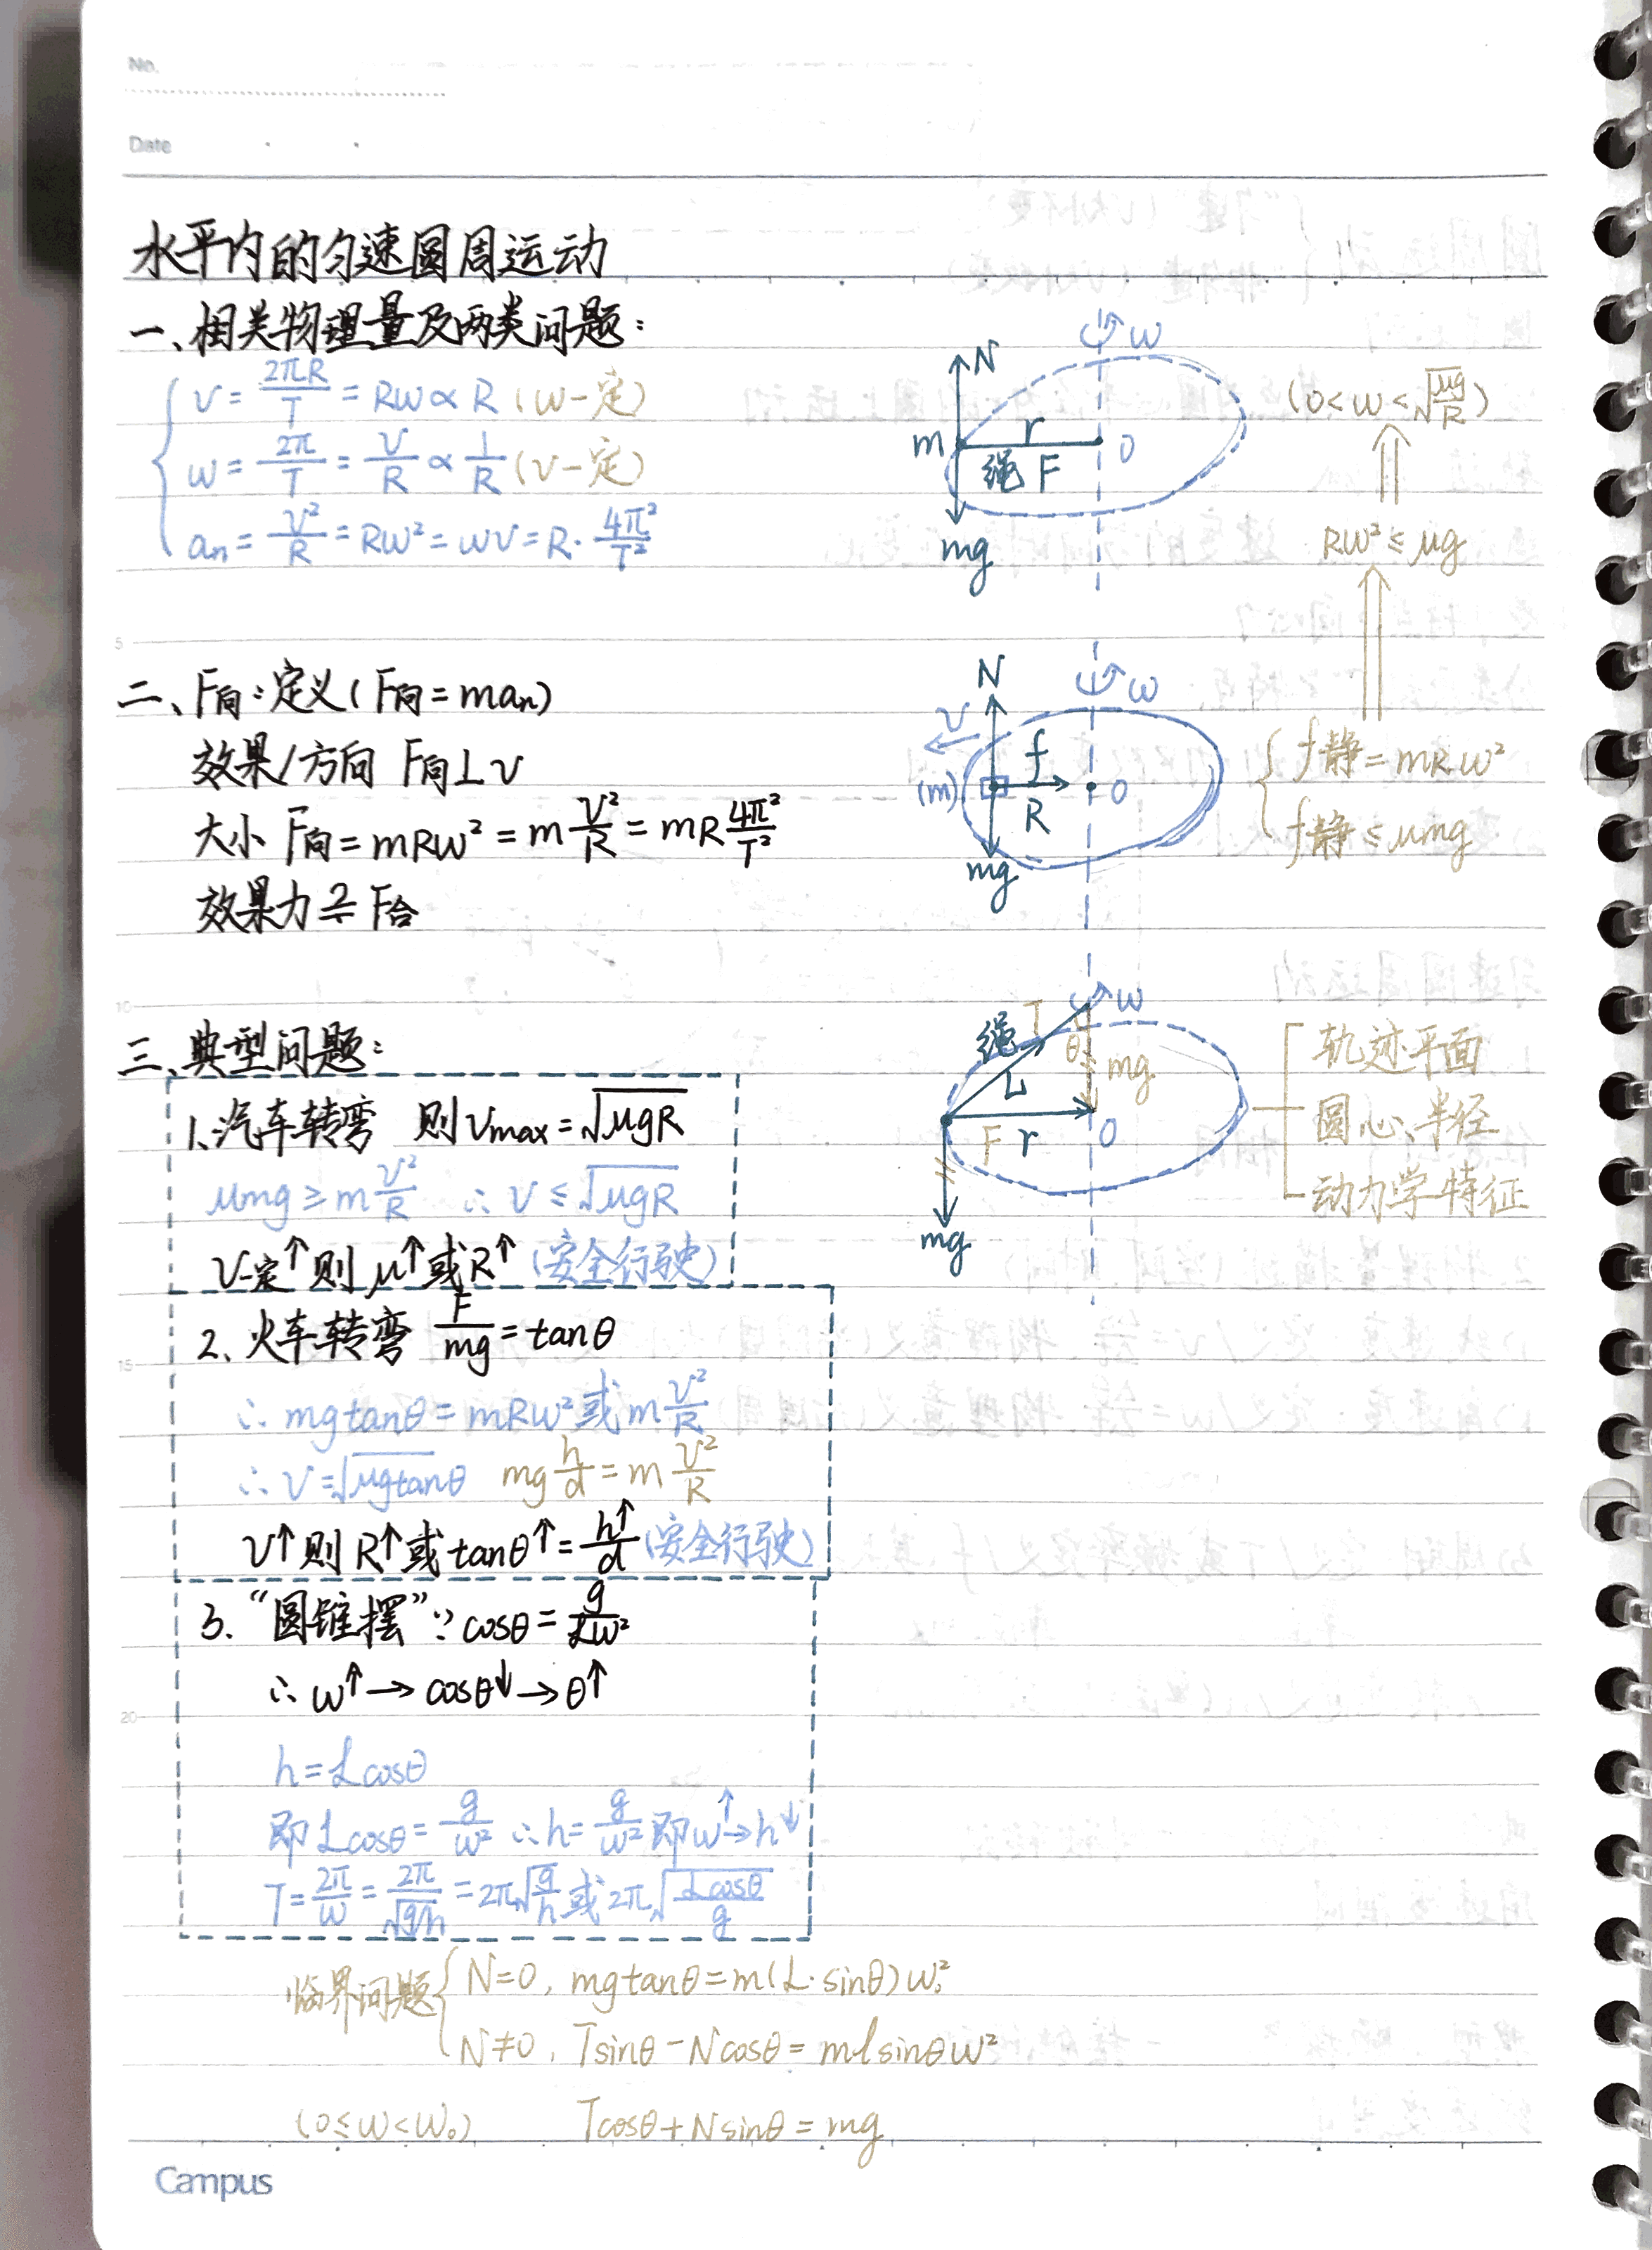 No.
Date
水平内的匀速圆周运动
一、相关物理量及两类问题：
v = 2πR/T = Rω ∝ R (ω一定)
ω = 2π/T = v/R ∝ 1/R (v一定)
an = v²/R = Rω² = ωv = R·4π²/T²
ω
N
m r O
绳 F
mg
(0<ω<√(μg/R))
Rω² ≤ μg
二、F向：定义(F向=man)
效果/方向 F向⊥v
大小 F向=mRω²=m v²/R=mR 4π²/T²
效果力 ≟ F合
N ω
v f
(m) R O
mg
f静=mRω²
f静≤μmg
三、典型问题：
1.汽车转弯 则Vmax=√(μgR)
μmg≥m v²/R ∴v≤√(μgR)
V一定↑则μ↑或R↑(安全行驶)
2、火车转弯 F/mg=tanθ
∴mgtanθ=mRω²或m v²/R
∴v=√(μgtan)θ mg h/d=m v²/R
v↑则R↑或tanθ↑=h↑/d(安全行驶)
3.“圆锥摆”∵cosθ=g/Lω²
∴ω↑→cosθ↓→θ↑
h=Lcosθ
即Lcosθ=g/ω² ∴h=g/ω² 即ω↑→h↓
T=2π/ω=2π/√(g/h)=2π√(g/h)或2π√(Lcosθ/g)
ω
绳 T θ mg
L
F r O
mg
轨迹平面
圆心、半径
动力学特征
临界问题
N=0, mgtanθ=m(L·sinθ)ω₀²
N≠0, Tsinθ-Ncosθ=mlsinθω²
(0≤ω<ω₀) Tcosθ+Nsinθ=mg
Campus